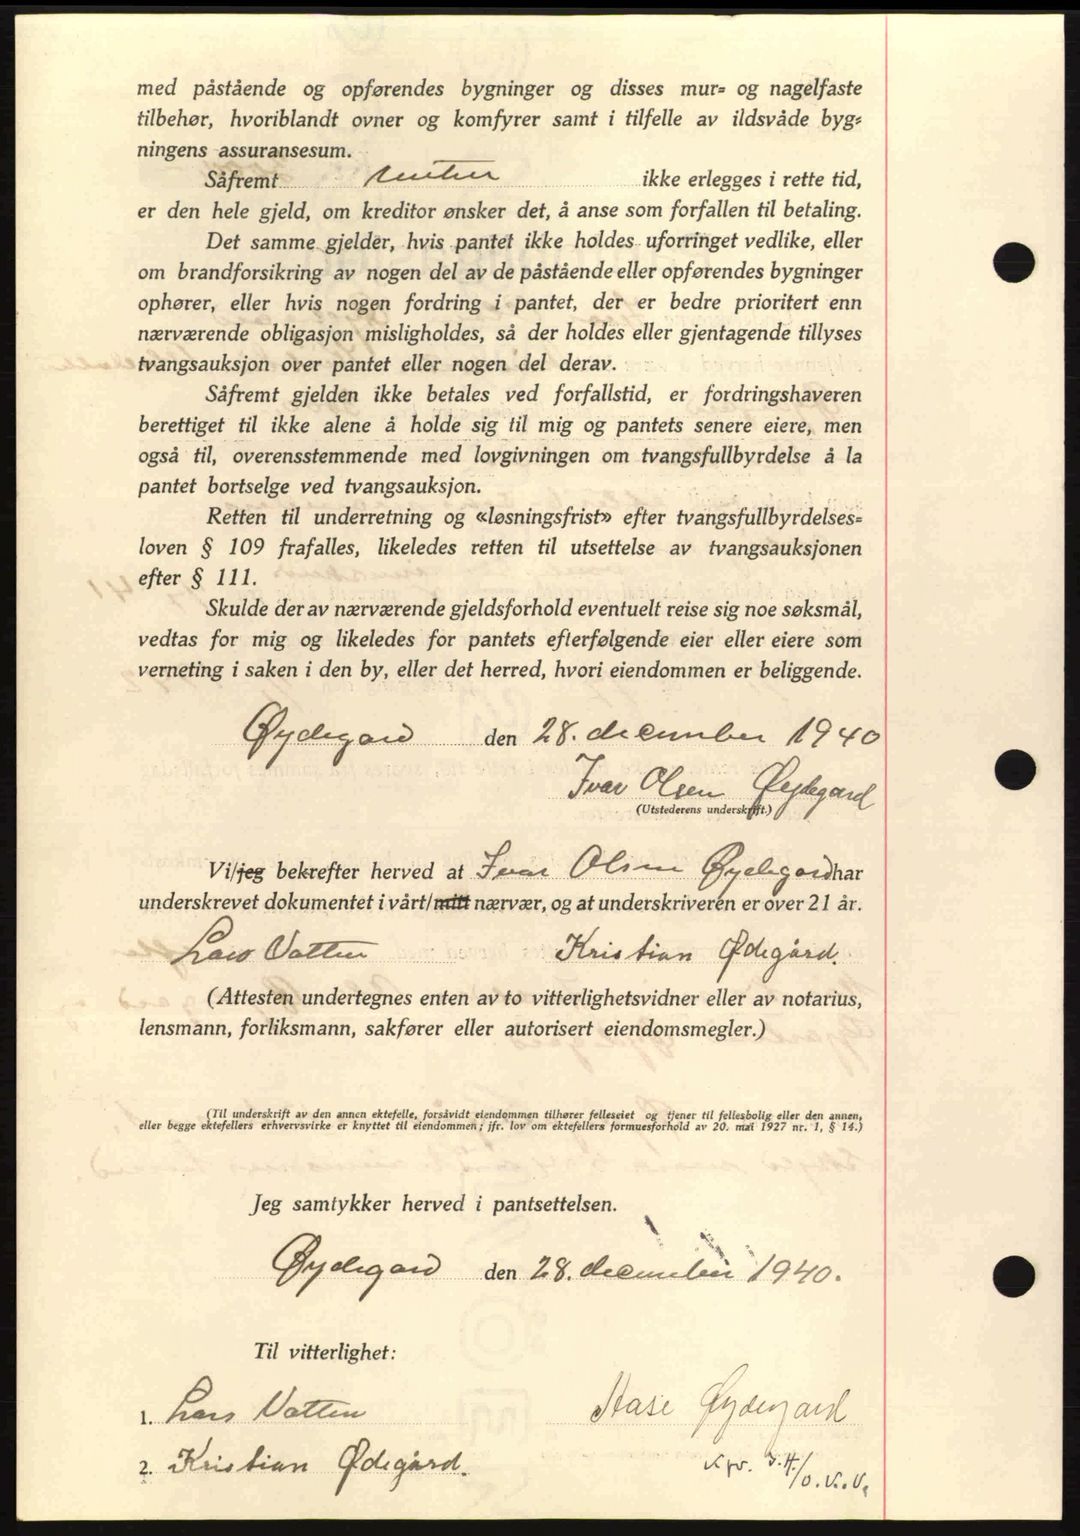 med påstående og opførendes bygninger og disses mur= og nagelfaste
tilbehør, hvoriblandt ovner og komfyrer samt i tilfelle av ildsvåde byg=
ningens assuransesum.
Såfremt renter ikke erlegges i rette tid,
er den hele gjeld, om kreditor ønsker det, å anse som forfallen til betaling.
Det samme gjelder, hvis pantet ikke holdes uforringet vedlike, eller
om brandforsikring av nogen del av de påstående eller opførendes bygninger
ophører, eller hvis nogen fordring i pantet, der er bedre prioritert enn
nærværende obligasjon misligholdes, så der holdes eller gjentagende tillyses
tvangsauksjon over pantet eller nogen del derav.
Såfremt gjelden ikke betales ved forfallstid, er fordringshaveren
berettiget til ikke alene å holde sig til mig og pantets senere eiere, men
også til, overensstemmende med lovgivningen om tvangsfullbyrdelse å la
pantet bortselge ved tvangsauksjon.
Retten til underretning og «løsningsfrist» efter tvangsfullbyrdelses=
loven § 109 frafalles, likeledes retten til utsettelse av tvangsauksjonen
efter § 111.
Skulde der av nærværende gjeldsforhold eventuelt reise sig noe søksmål,
vedtas for mig og likeledes for pantets efterfølgende eier eller eiere som
verneting i saken i den by, eller det herred, hvori eiendommen er beliggende.
Øydegard den 28. december 1940
Ivar Olsen Øydegard
(Utstederens underskrift.)
Vi/jeg bekrefter herved at Ivar Olsen Øydegard har
underskrevet dokumentet i vårt/mitt nærvær, og at underskriveren er over 21 år.
Lars Vatten Kristian Ødegård.
(Attesten undertegnes enten av to vitterlighetsvidner eller av notarius,
lensmann, forliksmann, sakfører eller autorisert eiendomsmegler.)
(Til underskrift av den annen ektefelle, forsåvidt eiendommen tilhører felleseiet og tjener til fellesbolig eller den annen,
eller begge ektefellers erhvervsvirke er knyttet til eiendommen; jfr. lov om ektefellers formuesforhold av 20. mai 1927 nr. 1, § 14.)
Jeg samtykker herved i pantsettelsen.
Øydegard den 28. december 1940.
Til vitterlighet:
1. Lars Vatten Aase Øydegard
2. Kristian Ødegård.